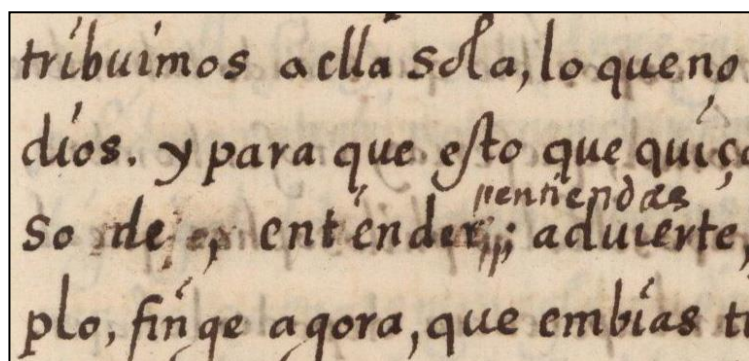 tribuimos a ella sola, lo que no
dios. y para que esto que quiça
entiendas
so de, entender; aduierte,
plo, finge agora, que embias tu